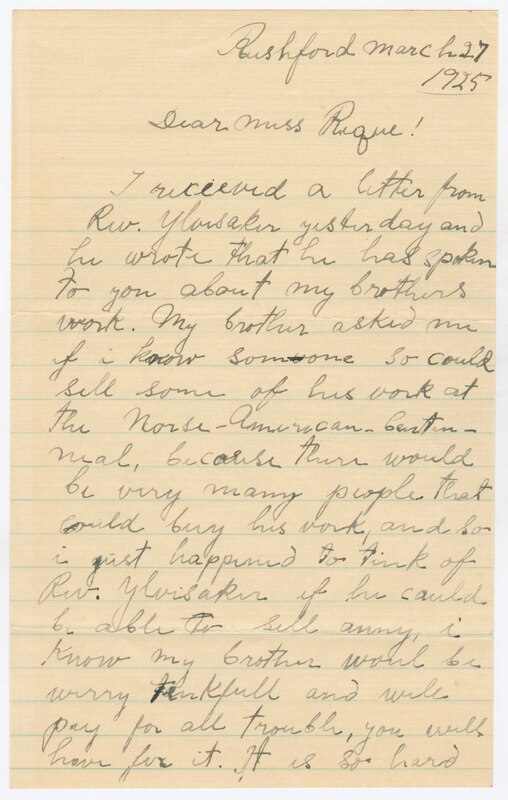 Rushford March 27
1925
Dear Miss Rique!
I received a letter from
Rev. Ylvisaker yesterday and
he wrote that he has spoken
to you about my brothers
work. My brother asked me
if i know someone so could
sell some of his work at
the Norse-American-Centen-
nial, because there would
be very many people that
could buy his work, and so
i just happened to tink of
Rev. Ylvisaker if he could
be able to sell anny, i
know my brother woul be
werry tenkfull and will
pay for all trouble, you will
have for it. It is so hard